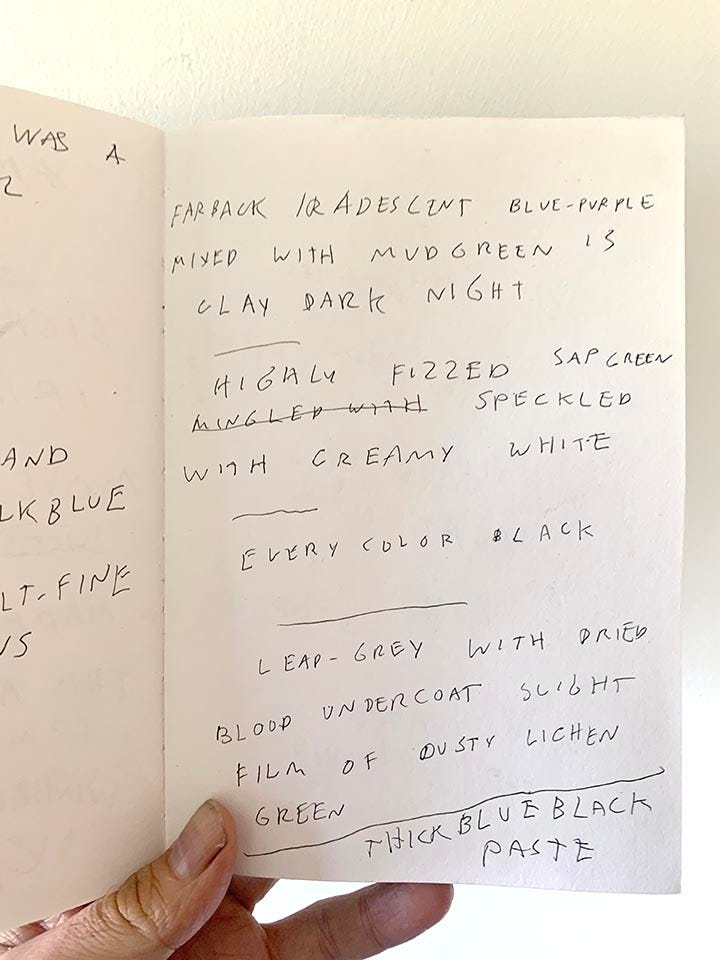 WAS A
AND
LK BLUE
LT-FINE
FARBACK IRADESCINT BLUE-PURPLE
MIXED WITH MUD GREEN IS
CLAY DARK NIGHT
HIGHLY FIZZED SAP GREEN
MINGLED WITH SPECKLED
WITH CREAMY WHITE
EVERY COLOR BLACK
LEAD-GREY WITH DRIED
BLOOD UNDERCOAT SLIGHT
FILM OF DUSTY LICHEN
GREEN
THICK BLUE BLACK
PASTE